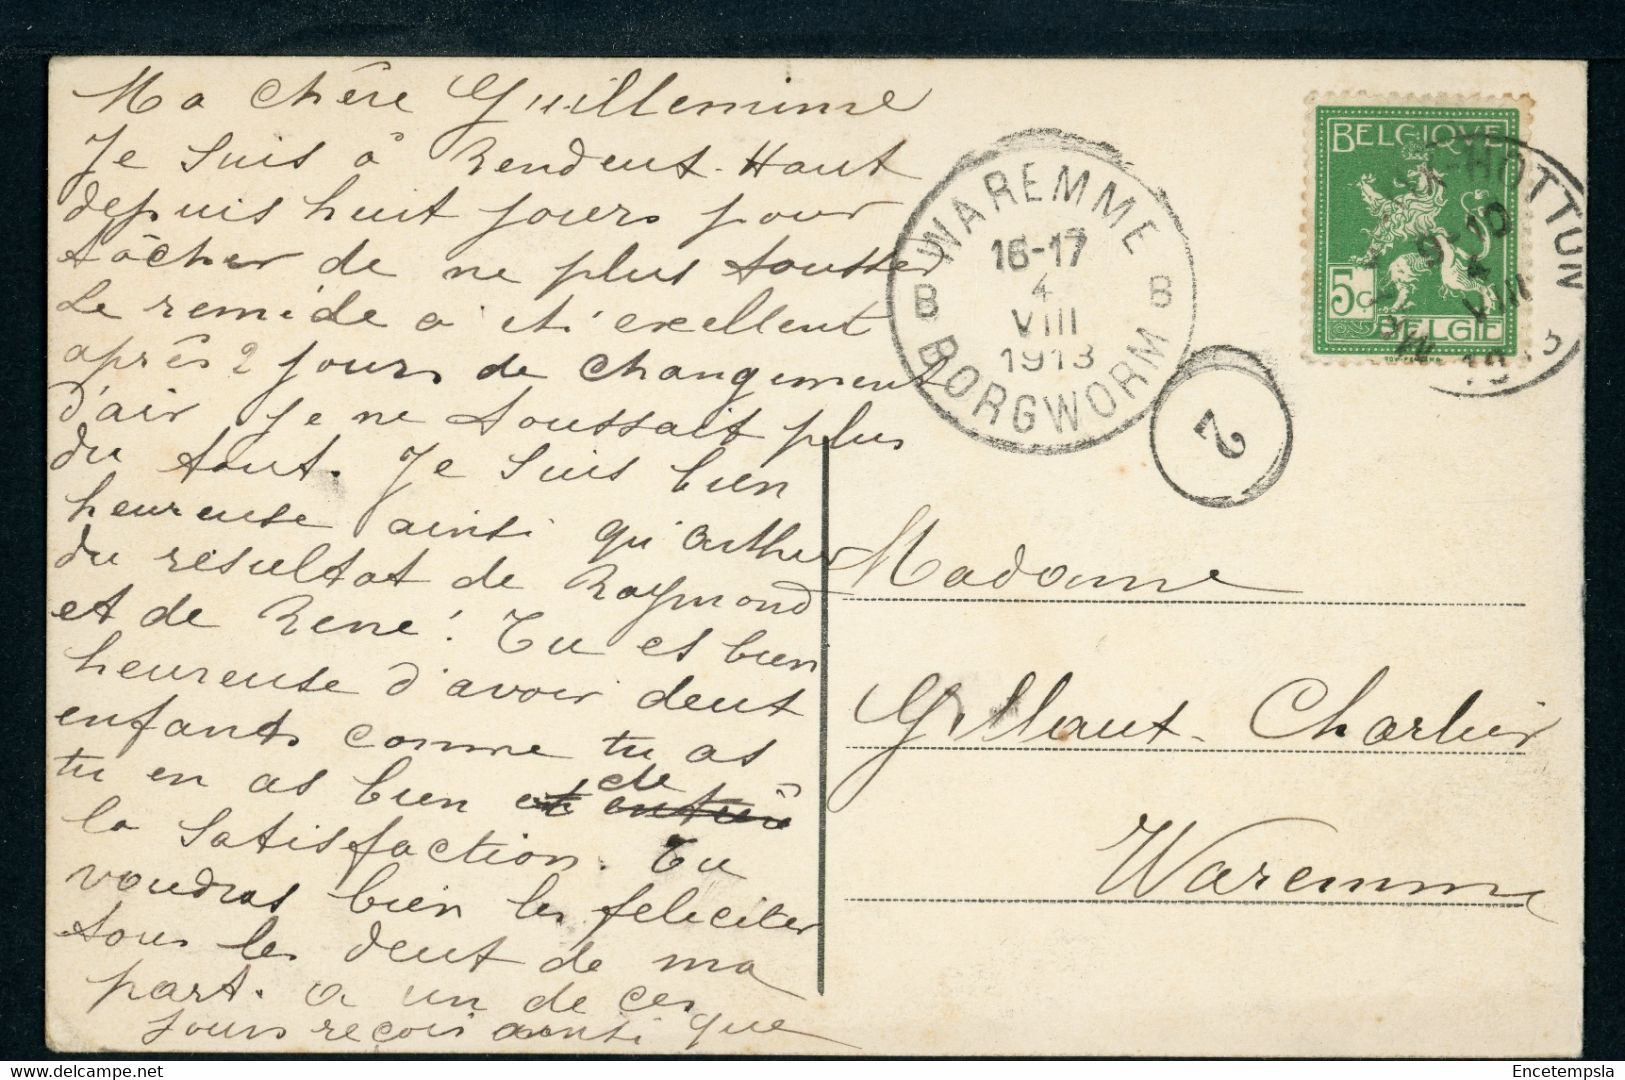 Ma chère Guillemine
Je suis à Rendeut-Haut
depuis huit jours pour
tâcher de ne plus tousser
Le remide a eté excellent
après 2 jours de changement
d'air je ne toussait plus
du tout. Je suis bien
heureuse ainsi qu'Arthur
du résultat de Raymond
et de René! Tu es bien
heureuse d'avoir deut
enfants comme tu as
tu en as bien de
la satisfaction. Tu
voudras bien les feliciter
tous les deut de ma
part. a un de ces
jours reçois ainsi que
BELGIQUE
5c
BELGIE
WAREMME
16-17
4
VIII
1913
B B
BORGWORM
2
HOTTON
9-10
4
VIII
Madame
Gillaut-Charlier
Waremme
Encetempsla